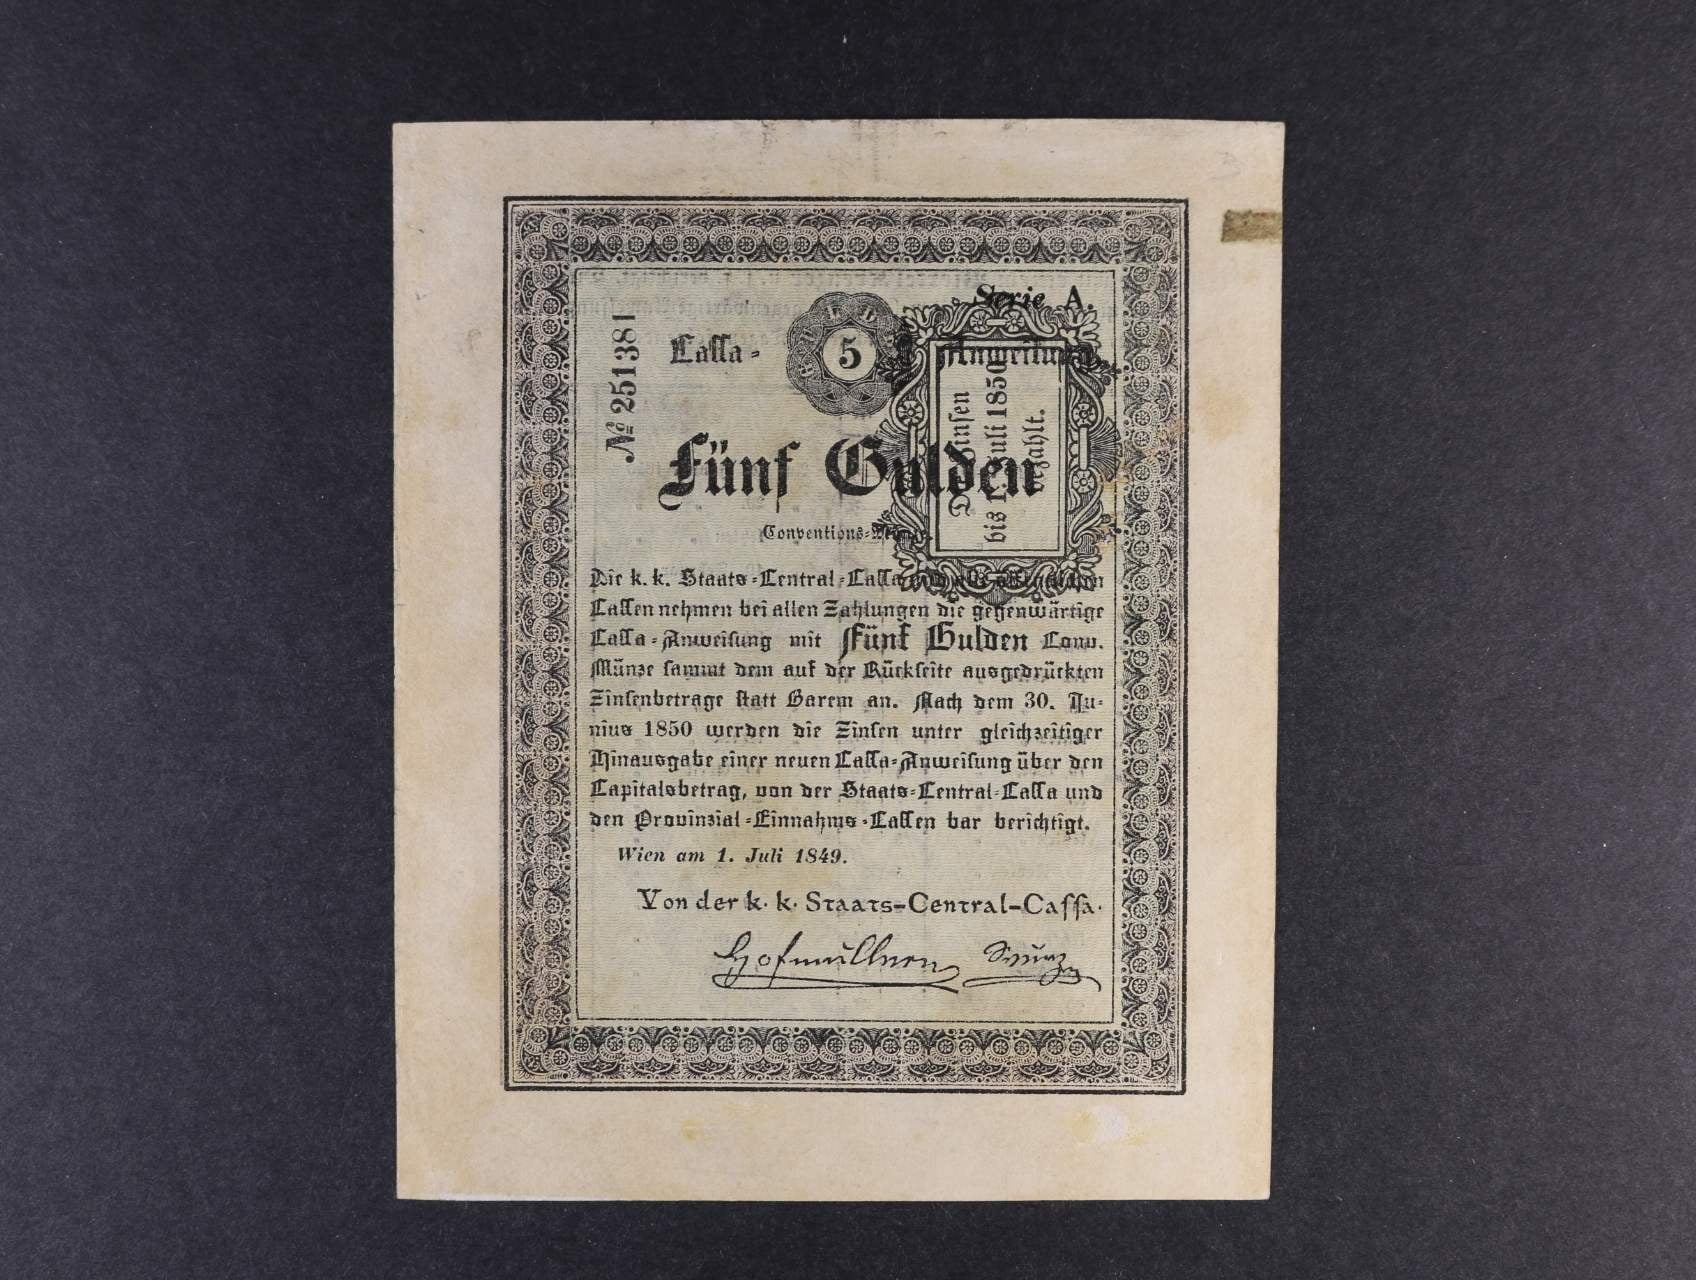 Serie A.
№ 251381
Cassa- 5 Anweisung
Fünf Gulden
Conventions-
Die k. k. Staats-Central-Cassa und alle öffentlichen
Cassen nehmen bei allen Zahlungen die gegenwärtige
Cassa-Anweisung mit Fünf Gulden Conv.
Münze sammt dem auf der Rückseite ausgedrückten
Zinsenbetrage statt Barem an. Nach dem 30. Ju-
nius 1850 werden die Zinsen unter gleichzeitiger
Hinausgabe einer neuen Cassa-Anweisung über den
Capitalsbetrag, von der Staats-Central-Cassa und
den Provinzial-Einnahms-Cassen bar berichtigt.
Wien am 1. Juli 1849.
Von der k. k. Staats-Central-Cassa.
Zinsen
bis Juli 1850
bezahlt.